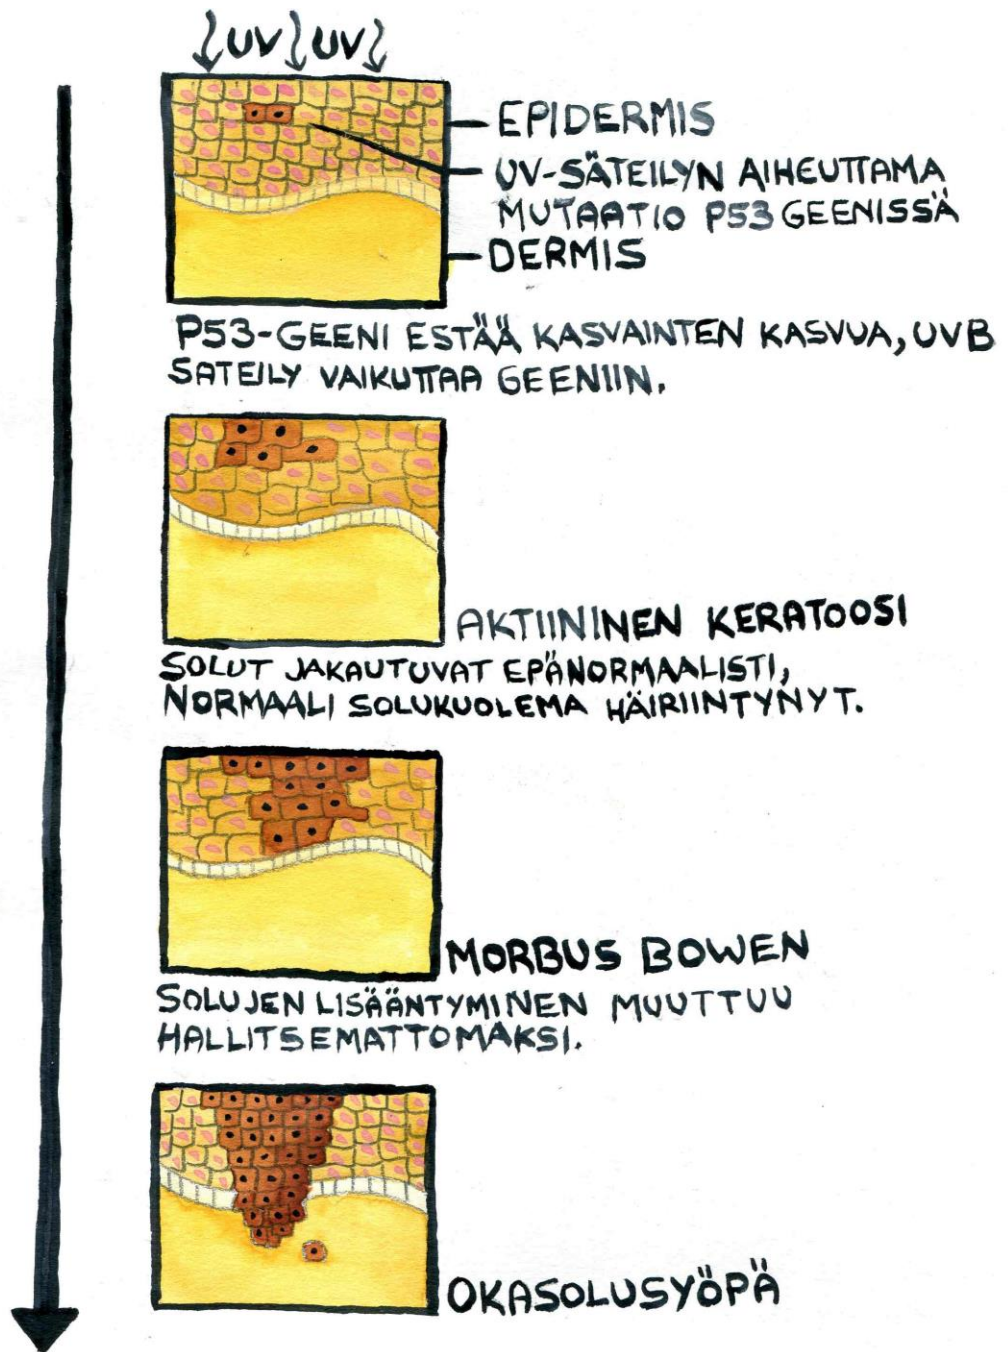 UV UV
EPIDERMIS
UV-SÄTEILYN AIHEUTTAMA
MUTAATIO P53 GEENISSÄ
DERMIS
P53-GEENI ESTÄÄ KASVAINTEN KASVUA, UVB
SÄTEILY VAIKUTTAA GEENIIN.
AKTIININEN KERATOOSI
SOLUT JAKAUTUVAT EPÄNORMAALISTI,
NORMAALI SOLUKUOLEMA HÄIRIINTYNYT.
MORBUS BOWEN
SOLUJEN LISÄÄNTYMINEN MUUTTUU
HALLITSEMATTOMAKSI.
OKASOLUSYÖPÄ